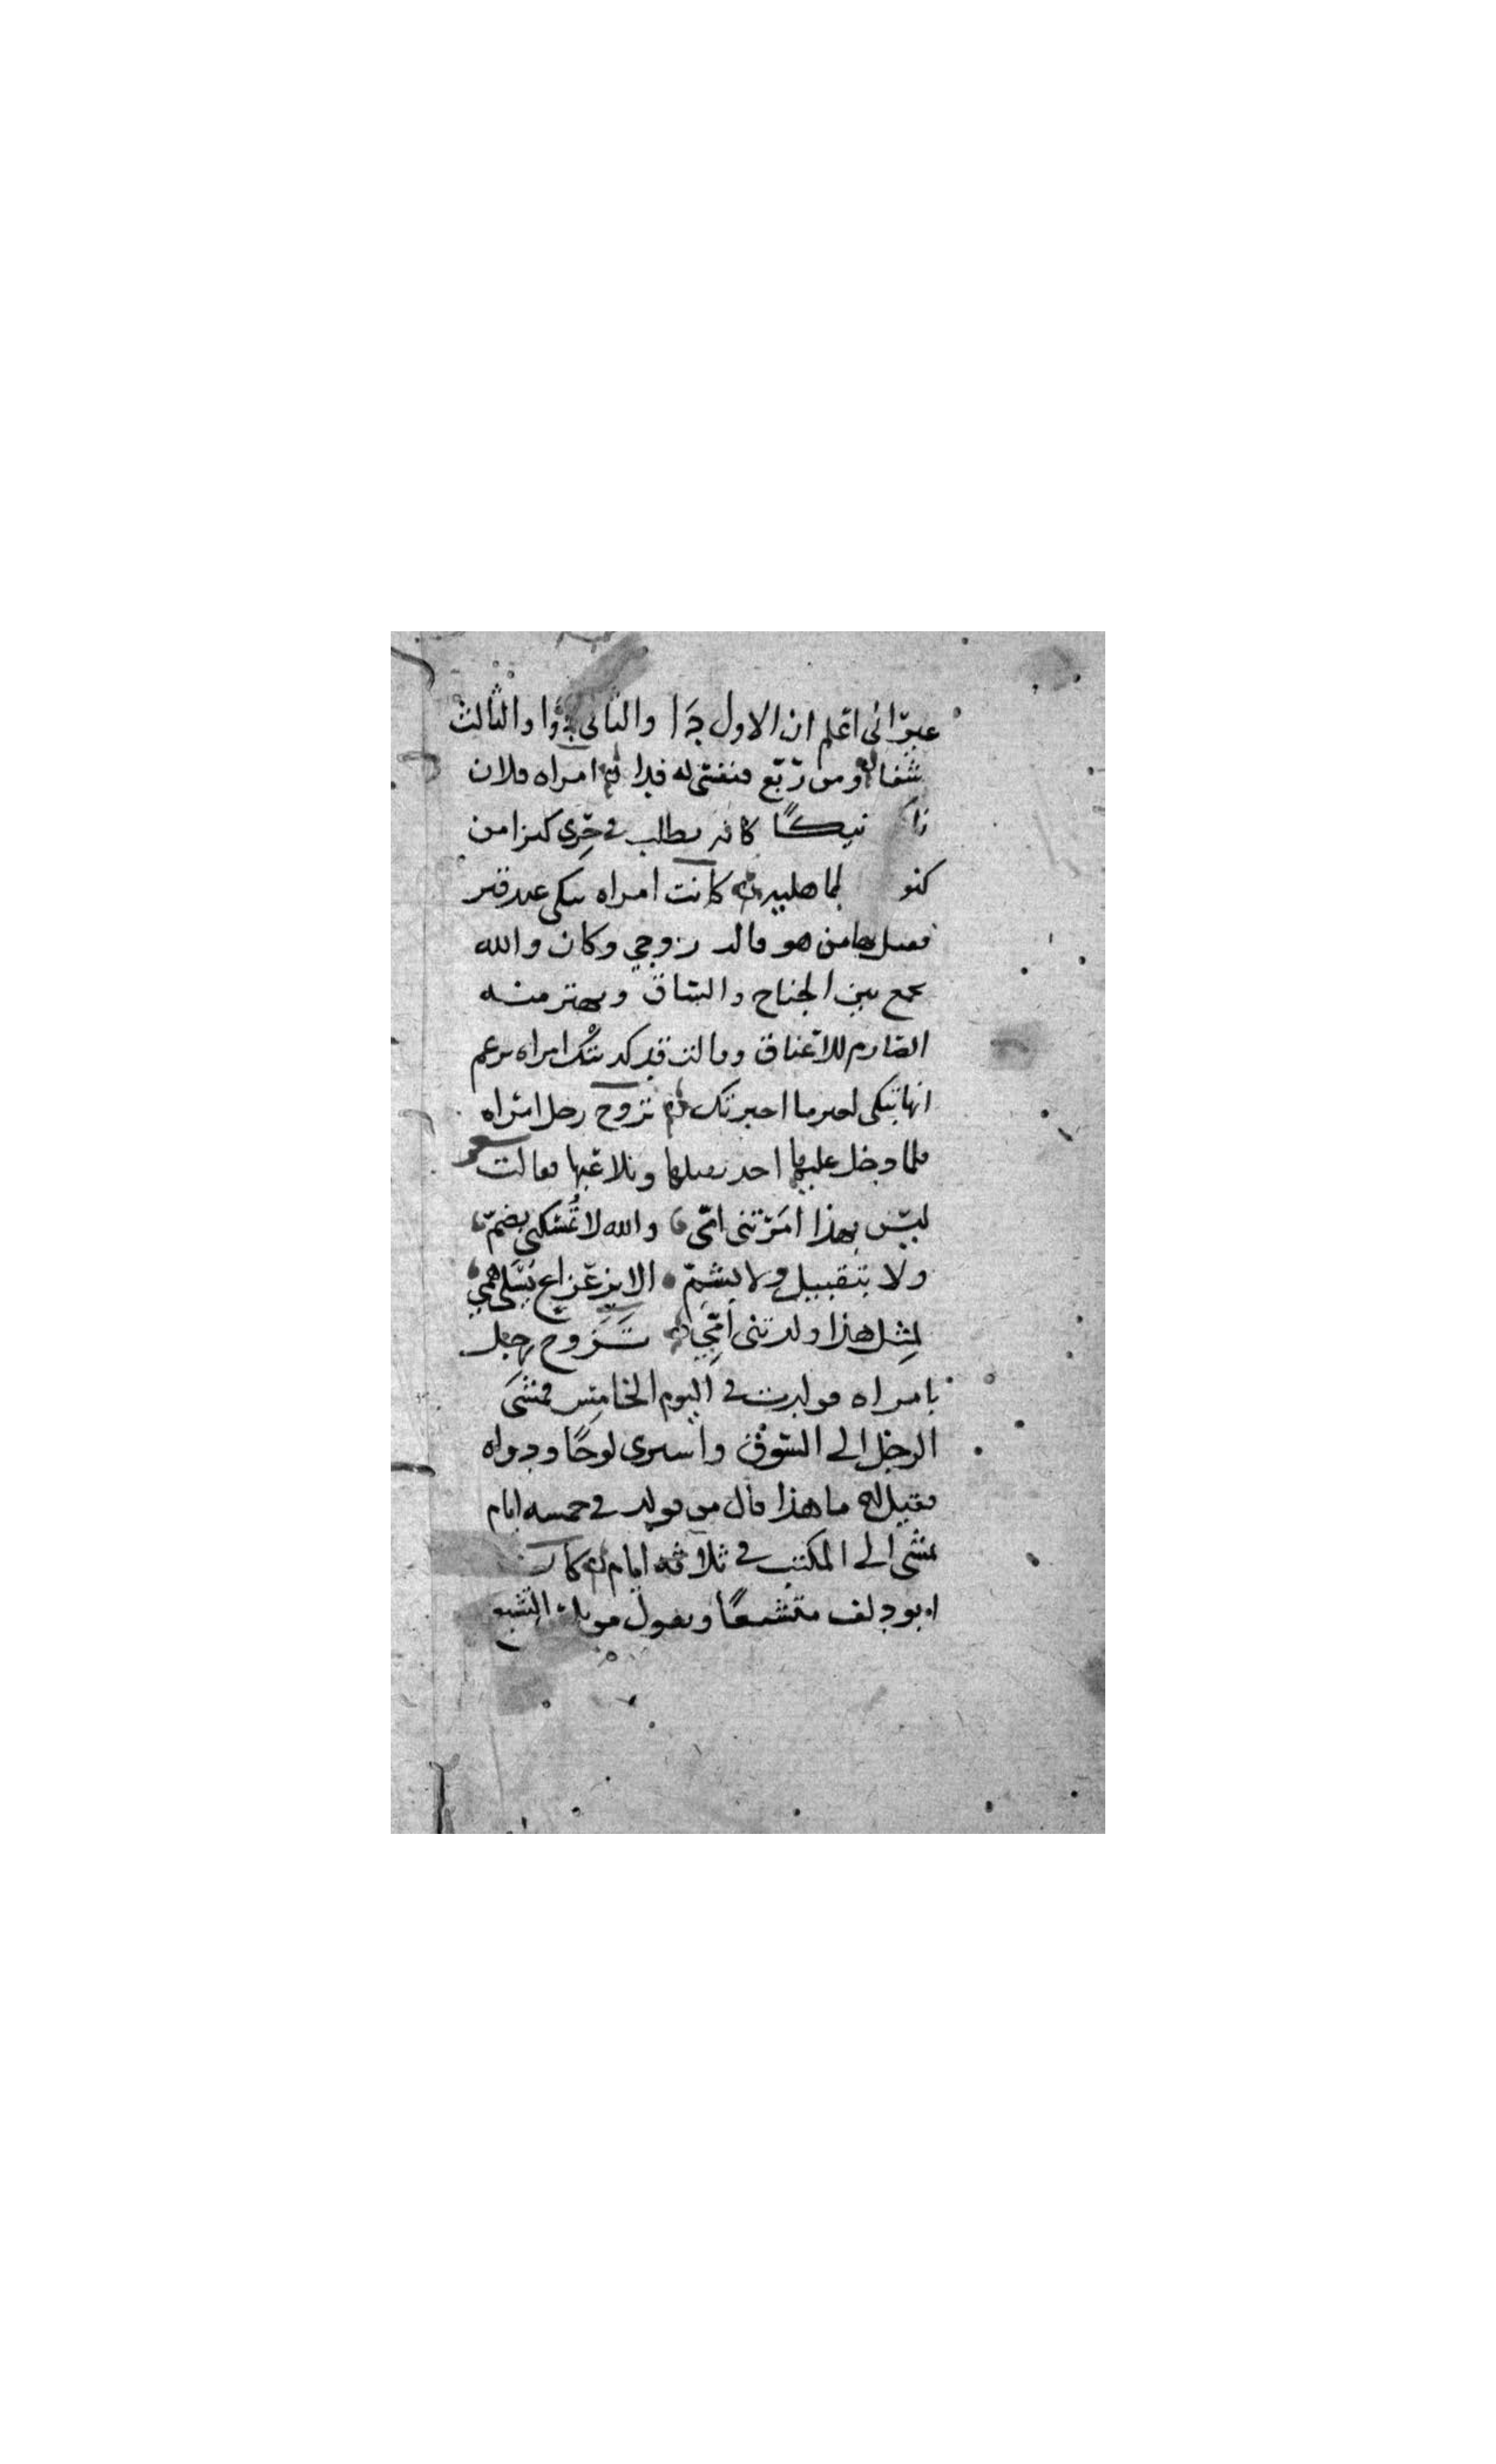 غير اني اعلم ان الاول داء والثاني دواء والثالث
شفاء ومن ربّع فنفسي له فدا امراه فلان
نيكًا كانه يطلب في حِرى كنزا من
كنو الجاهليه كانت امراه تبكي عند قبر
فقيل لها من هو قالت زوجي وكان والله
يجمع بين الجناح والساق ويهتز منه
الصارم للاعناق وقالت قد كذبتك امراه تزعم
انها تبكي لغير ما اخبرتك تزوج رجل امراه
فلما دخل عليها اخذ يقبلها ويلاعبها فقالت
ليس بهذا اَمَرَتنى امّى والله لا تُمسكنى بضمّ
ولا بتقبيل ولا بشمّ الا بزعزاع يُسَلّى همّي
لمثل هذا ولدتنى اُمّي تَزوج رجل
بامراه فولدت في اليوم الخامس فمشى
الرجل الى السوق واشترى لوحًا ودواه
فقيل له ما هذا قال من يولد في خمسه ايام
يمشى الى المكتب في ثلاثه ايام كان
ابو دلف متشيعًا ويقول من التشيع